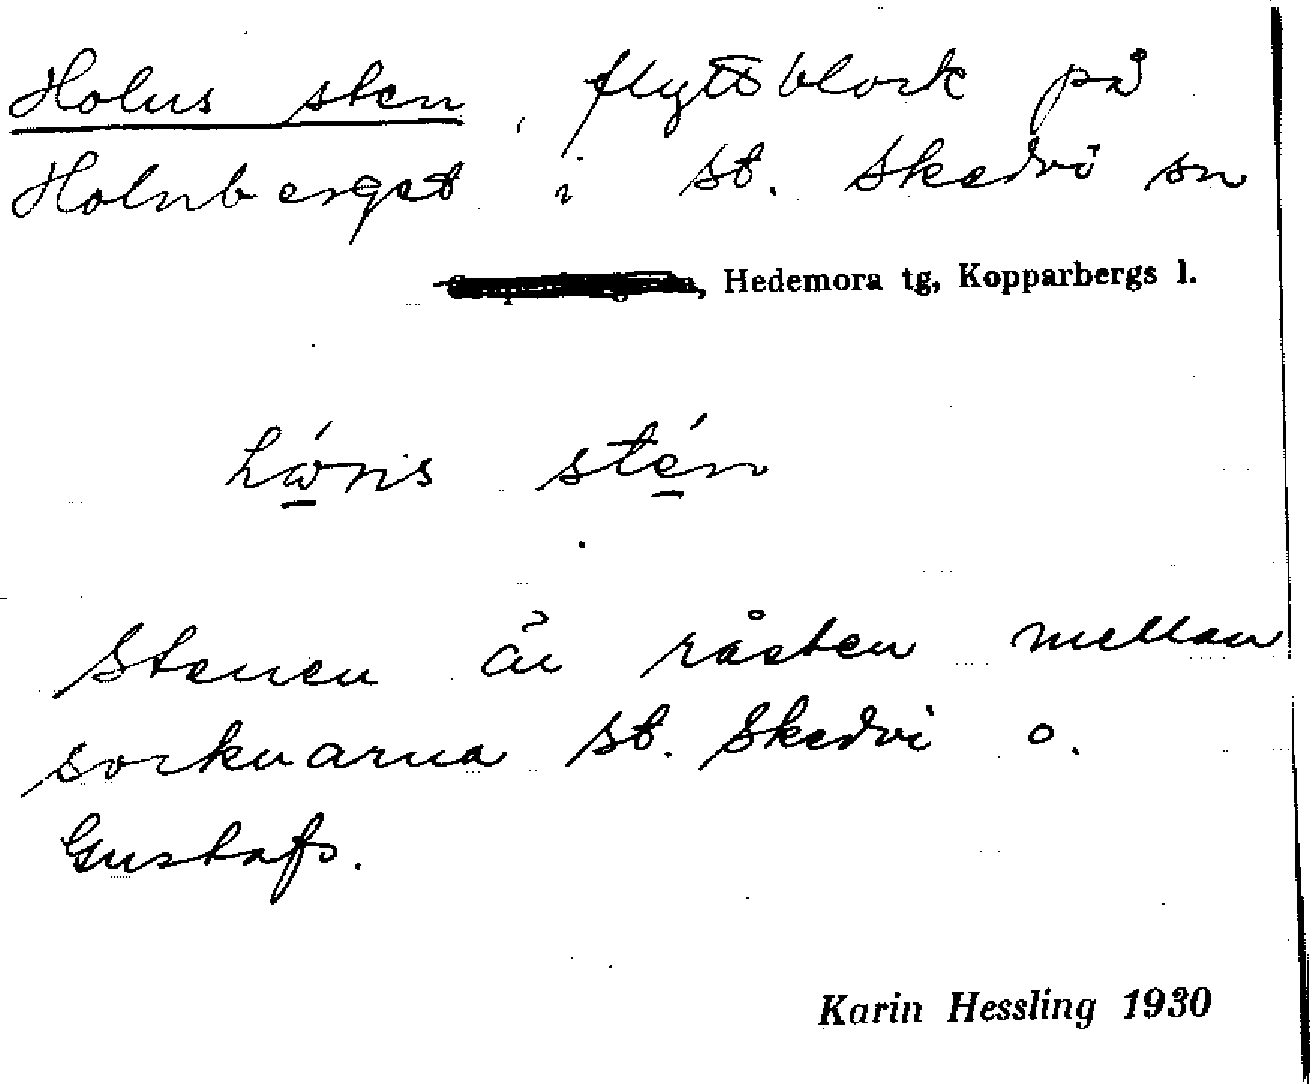 Holns sten, flyttblock på
Holnberget i St. Skedvi sn
, Hedemora tg, Kopparbergs l.
stén
Stenen är råsten mellan
socknarna St. Skedvi o.
Gustafs.
Karin Hessling 1930